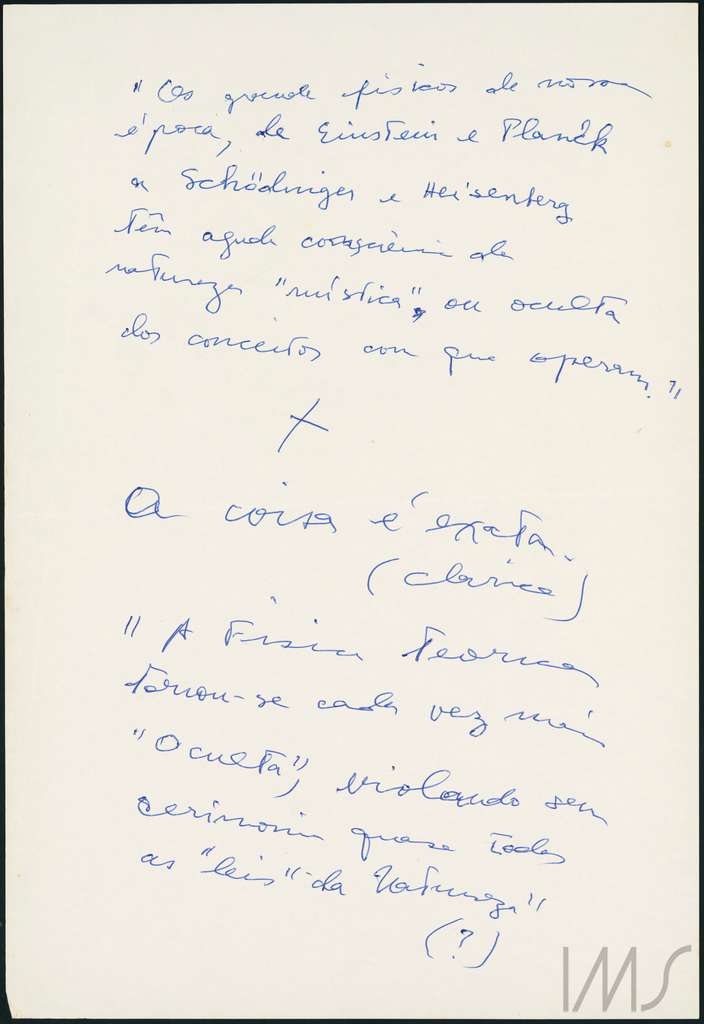 "Os grande físicos de nossa
época, de Einstein e Planck
a Schödinger e Heisenberg
têm aguda consciência da
natureza "mística", ou oculta
dos conceitos com que operam."
X
A coisa é exata.
(Clarice)
"A Física Teorica
tornou-se cada vez mais
"Oculta", violando sem
cerimonia quase todas
as "leis" da Natureza"
(?)
IMS